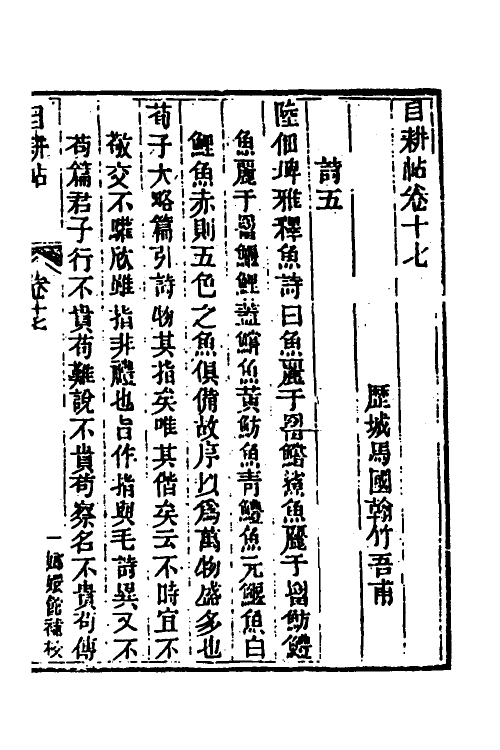 目耕帖卷十七
歷城馬國翰竹吾甫
詩五
陸佃埤雅釋魚詩曰魚麗于罶鱨鯊魚麗于罶魴鱧
魚麗于罶鰋鯉蓋鱨魚黃魴魚青鱧魚元鰋魚白
鯉魚赤則五色之魚俱備故序以為萬物盛多也
荀子大略篇引詩物其指矣唯其偕矣云不時宜不
敬交不驩欣雖指非禮也旨作指與毛詩異又不
苟篇君子行不貴苟難說不貴苟察名不貴苟傳
目耕帖
卷十七
一 嫏嬛館補校